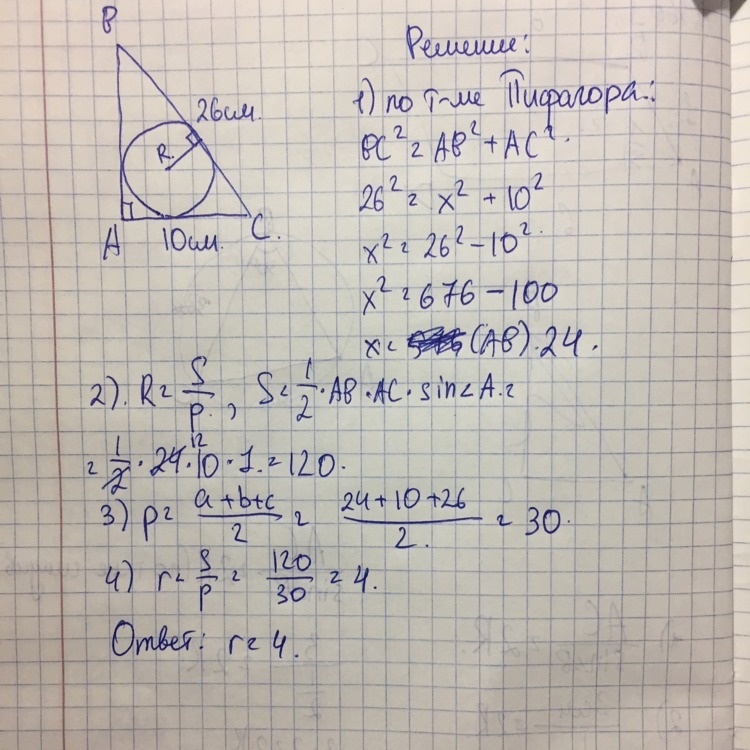 B
26см.
R.
A
10см.
C.
Решение:
1) по т-ме Пифагора:
BC² = AB² + AC².
26² = x² + 10²
x² = 26² - 10².
x² = 676 - 100
x = (AB). 24.
2). R = S/p. , S = 1/2 · AB · AC · sin∠A. =
= 1/2 · 24 12 · 10 · 1. = 120.
3) p = (a+b+c)/2 = (24+10+26)/2. = 30.
4) r = S/p = 120/30 = 4.
Ответ: r = 4.